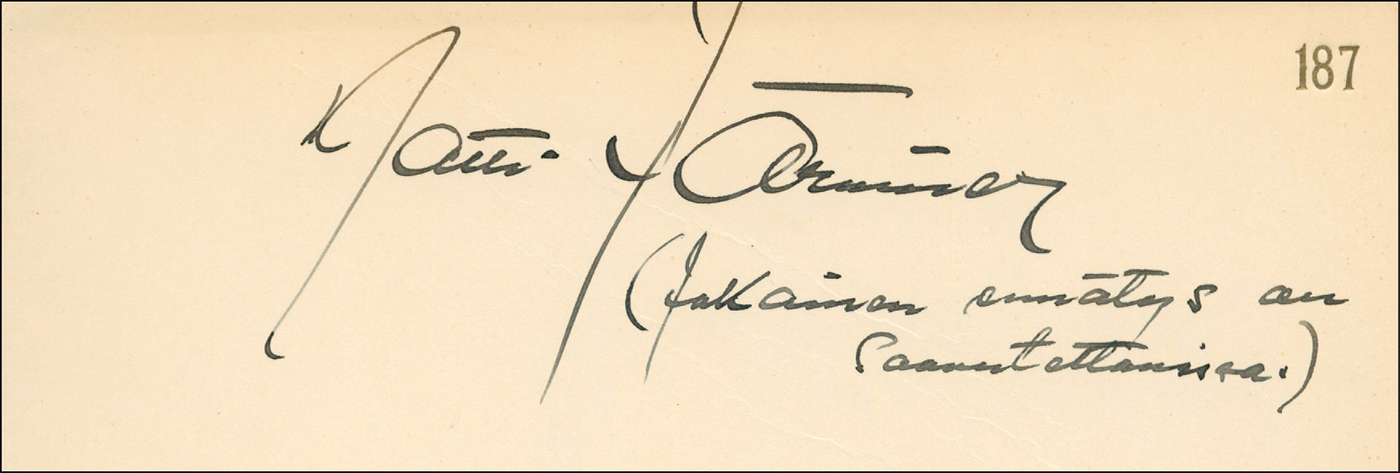 187
Matti Järvinen
(Jokainen ennätys on
saavutettavissa.)